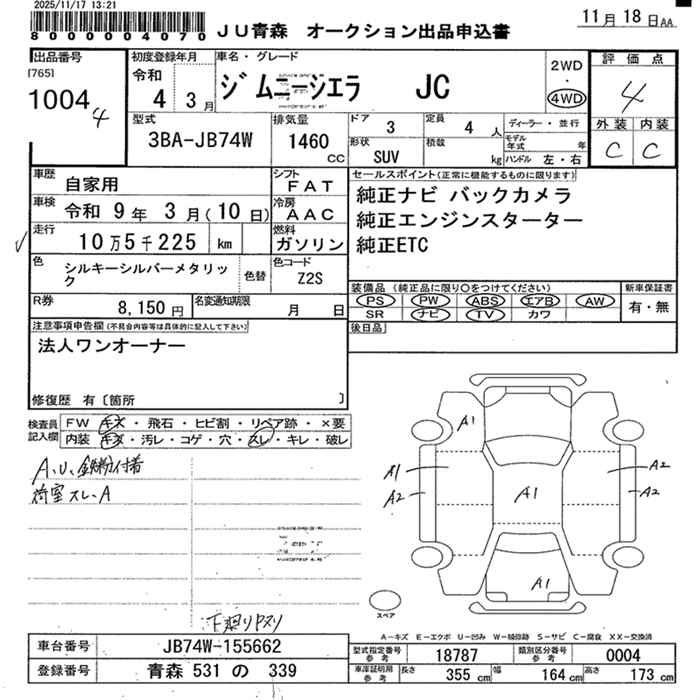 2025/11/17 13:21
8000004070
JU青森 オークション出品申込書
11月18日AA
出品番号
[765]
1004
4
初度登録年月
令和
4 3月
車名・グレード
ジムニーシエラ JC
2WD
・
4WD
評価点
4
外装 内装
C C
型式
3BA-JB74W
排気量
1460
CC
ドア 3
定員 4人
ディーラー・並行
形状
SUV
積載
kg
モデル年式 年
ハンドル 左・右
車歴
自家用
シフト
FAT
セールスポイント(正常に機能するものに限ります)
純正ナビ バックカメラ
純正エンジンスターター
純正ETC
車検 令和 9年 3月(10日)
冷房
AAC
走行
10万5千225 km
燃料
ガソリン
色
シルキーシルバーメタリック
色替
色コード
Z2S
装備品(純正品に限り○をつけてください)
PS PW ABS エアB AW
SR ナビ TV カワ
新車保証書
有・無
R券
8,150円
名変通知期限
月 日
後日品
注意事項申告欄(不具合内容等は具体的に記入して下さい)
法人ワンオーナー
修復歴 有〔箇所 〕
検査員
記入欄
FW キズ・飛石・ヒビ割・リペア跡・×要
内装 キズ・汚レ・コゲ・穴・スレ・キレ・破レ
A.U.鉄粉付着
荷室スレ.A
A1
A1
A2
A1
A2
A2
A1
スペア
下廻りPスリ
A-キズ E-エクボ U-凹み W-補修跡 S-サビ C-腐食 XX-交換済
車台番号
JB74W-155662
登録番号
青森 531 の 339
型式指定番号
参考
18787
類別区分番号
参考
0004
車庫証明用
参考
長さ 355 cm
幅 164 cm
高さ 173 cm